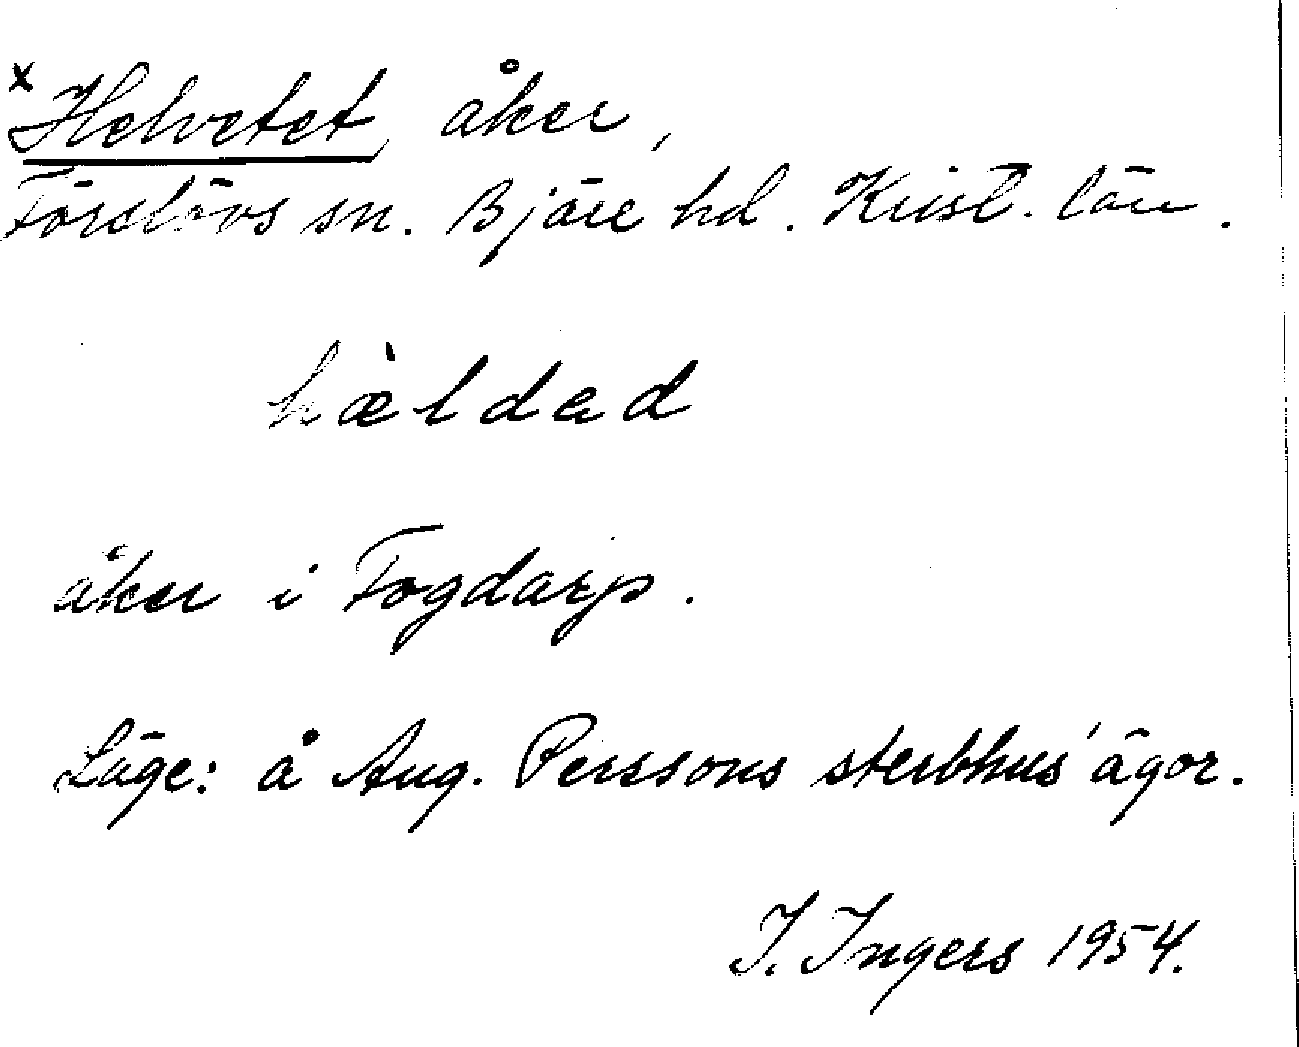 x Helvetet, åker,
Förslövs sn. Bjäre hd. Krist. län.
hæ̀ldad
åker i Fogdarp.
Läge: å Aug. Perssons sterbhus' ägor.
I. Ingers 1954.